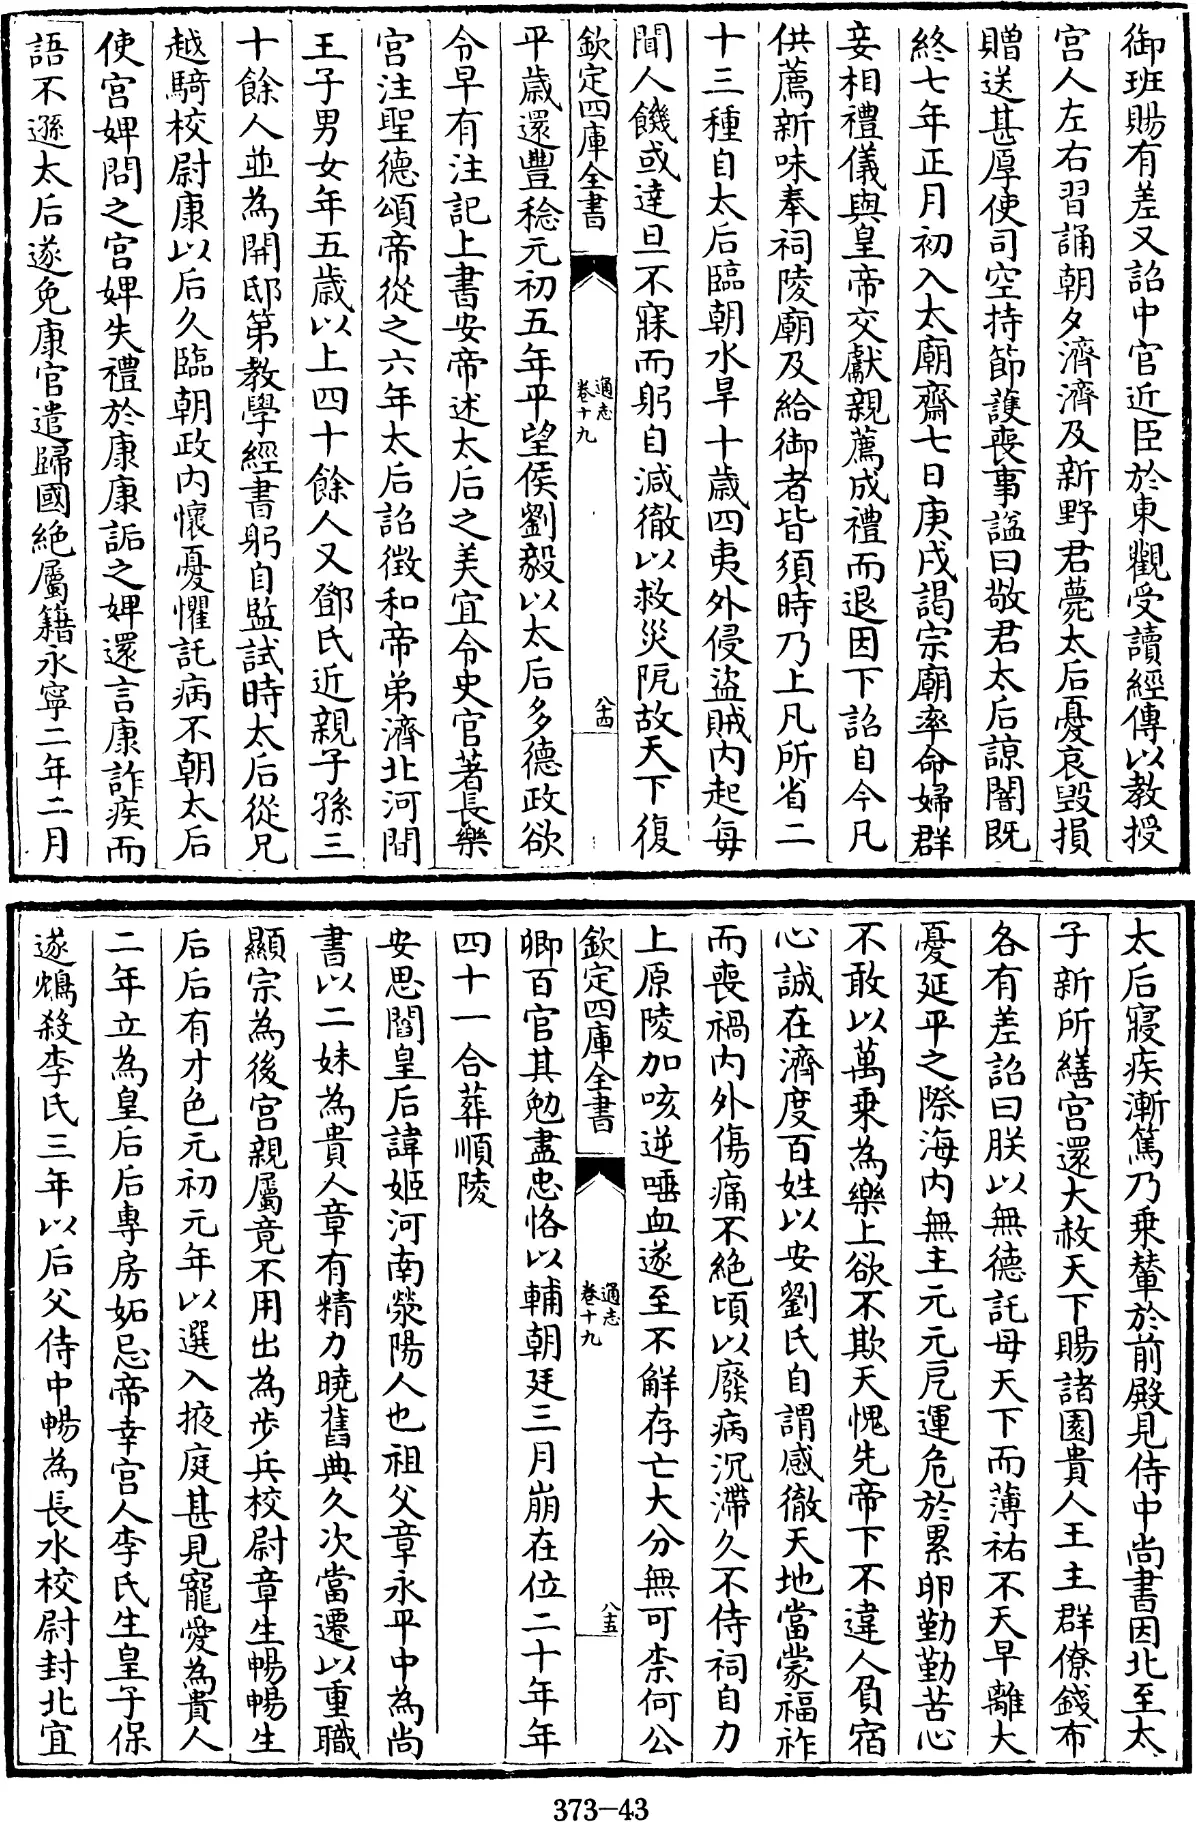 御班賜有差又詔中官近臣於東觀受讀經傳以教授
宮人左右習誦朝夕濟濟及新野君薨太后憂哀毀損
贈送甚厚使司空持節護喪事諡曰敬君太后諒闇既
終七年正月初入太廟齋七日庚戌謁宗廟率命婦群
妾相禮儀與皇帝交獻親薦成禮而退因下詔自今凡
供薦新味奉祠陵廟及給御者皆須時乃上凡所省二
十三種自太后臨朝水旱十歲四夷外侵盜賊内起每
聞人饑或達旦不寐而躬自減徹以救災阨故天下復
欽定四庫全書
通志
卷十九
八十四
平歲還豐稔元初五年平望侯劉毅以太后多德政欲
令早有注記上書安帝述太后之美宜令史官著長樂
宮注聖德頌帝從之六年太后詔徴和帝弟濟北河間
王子男女年五歲以上四十餘人又鄧氏近親子孫三
十餘人並為開邸第教學經書躬自監試時太后從兄
越騎校尉康以后久臨朝政内懷憂懼託病不朝太后
使宮婢問之宮婢失禮於康康詬之婢還言康詐疾而
語不遜太后遂免康官遣歸國絶屬籍永寧二年二月
太后寢疾漸篤乃乘輦於前殿見侍中尚書因北至太
子新所繕宮還大赦天下賜諸園貴人王主群僚錢布
各有差詔曰朕以無德託母天下而薄祐不天早離大
憂延平之際海内無主元元戹運危於累卵勤勤苦心
不敢以萬乘為樂上欲不欺天愧先帝下不違人負宿
心誠在濟度百姓以安劉氏自謂感徹天地當蒙福祚
而喪禍内外傷痛不絶頃以廢病沉滯久不侍祠自力
上原陵加咳逆唾血遂至不解存亡大分無可柰何公
欽定四庫全書
通志
卷十九
八十五
卿百官其勉盡忠恪以輔朝廷三月崩在位二十年年
四十一合葬順陵
安思閻皇后諱姬河南滎陽人也祖父章永平中為尚
書以二妹為貴人章有精力曉舊典久次當遷以重職
顯宗為後宮親屬竟不用出為步兵校尉章生暢暢生
后后有才色元初元年以選入掖庭甚見寵愛為貴人
二年立為皇后后專房妬忌帝幸宮人李氏生皇子保
遂鴆殺李氏三年以后父侍中暢為長水校尉封北宜
373-43